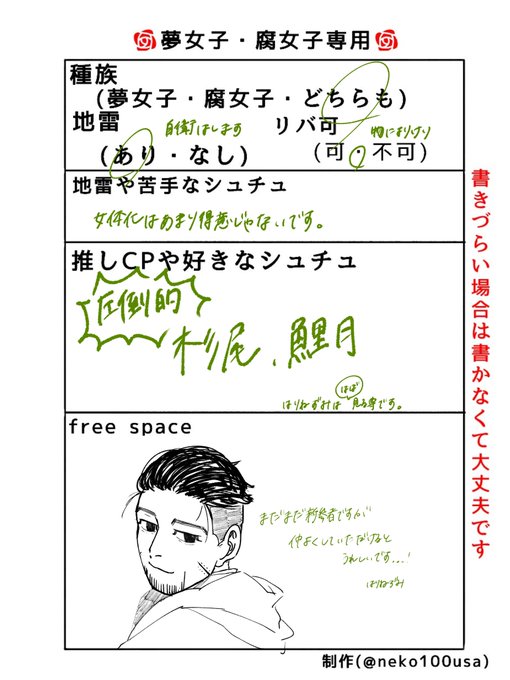 夢女子・腐女子専用
種族
(夢女子・腐女子・どちらも)
地雷 自衛はします
(あり・なし)
リバ可 物によりけり
(可・不可)
地雷や苦手なシュチュ
女体化はあまり得意じゃないです。
推しCPや好きなシュチュ
圧倒的
杉尾、鯉月
はりねずみは ほぼ 見る専です。
free space
まだまだ新参者ですが
仲よくしていただけると
うれしいです...!
はりねずみ
書きづらい場合は書かなくて大丈夫です
制作(@neko100usa)